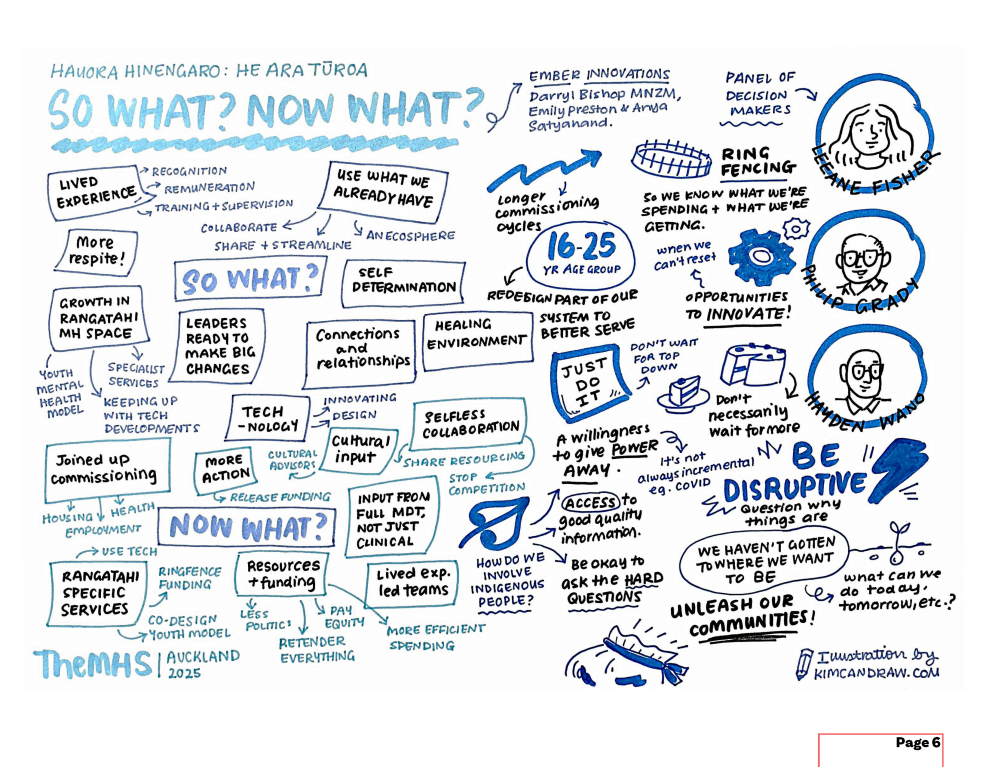 HAUORA HINENGARO: HE ARA TŪROA
SO WHAT? NOW WHAT?
EMBER INNOVATIONS
Darryl Bishop MNZM,
Emily Preston & Anya
Satyanand.
PANEL OF
DECISION
MAKERS
LEEANE FISHER
PHILIP GRADY
HAYDEN WANO
LIVED
EXPERIENCE
RECOGNITION
REMUNERATION
TRAINING + SUPERVISION
USE WHAT WE
ALREADY HAVE
COLLABORATE
SHARE + STREAMLINE
AN ECOSPHERE
More
respite!
SO WHAT?
SELF
DETERMINATION
GROWTH IN
RANGATAHI
MH SPACE
YOUTH
MENTAL
HEALTH
MODEL
SPECIALIST
SERVICES
KEEPING UP
WITH TECH
DEVELOPMENTS
LEADERS
READY TO
MAKE BIG
CHANGES
Connections
and
relationships
HEALING
ENVIRONMENT
TECH
-NOLOGY
INNOVATING
DESIGN
SELFLESS
COLLABORATION
SHARE RESOURCING
STOP
COMPETITION
Cultural
input
CULTURAL
ADVISORS
Joined up
commissioning
HOUSING
HEALTH
EMPLOYMENT
MORE
ACTION
RELEASE FUNDING
NOW WHAT?
INPUT FROM
FULL MDT,
NOT JUST
CLINICAL
USE TECH
RANGATAHI
SPECIFIC
SERVICES
RINGFENCE
FUNDING
CO-DESIGN
YOUTH MODEL
Resources
+ funding
LESS
POLITICS
PAY
EQUITY
RETENDER
EVERYTHING
MORE EFFICIENT
SPENDING
Lived exp.
led teams
Longer
commissioning
cycles
RING
FENCING
SO WE KNOW WHAT WE'RE
SPENDING + WHAT WE'RE
GETTING.
16-25
YR AGE GROUP
REDESIGN PART OF OUR
SYSTEM TO
BETTER SERVE
when we
can't reset
OPPORTUNITIES
TO INNOVATE!
JUST
DO
IT
DON'T WAIT
FOR TOP
DOWN
Don't
necessarily
wait for more
A willingness
to give POWER
AWAY.
It's not
always incremental
eg. COVID
BE
DISRUPTIVE
Question why
things are
HOW DO WE
INVOLVE
INDIGENOUS
PEOPLE?
ACCESS to
good quality
information.
Be okay to
ask the HARD
QUESTIONS
WE HAVEN'T GOTTEN
TO WHERE WE WANT
TO BE
what can we
do today,
tomorrow, etc.?
UNLEASH OUR
COMMUNITIES!
TheMHS | AUCKLAND
2025
Illustration by
KIMCANDRAW.COM
Page 6